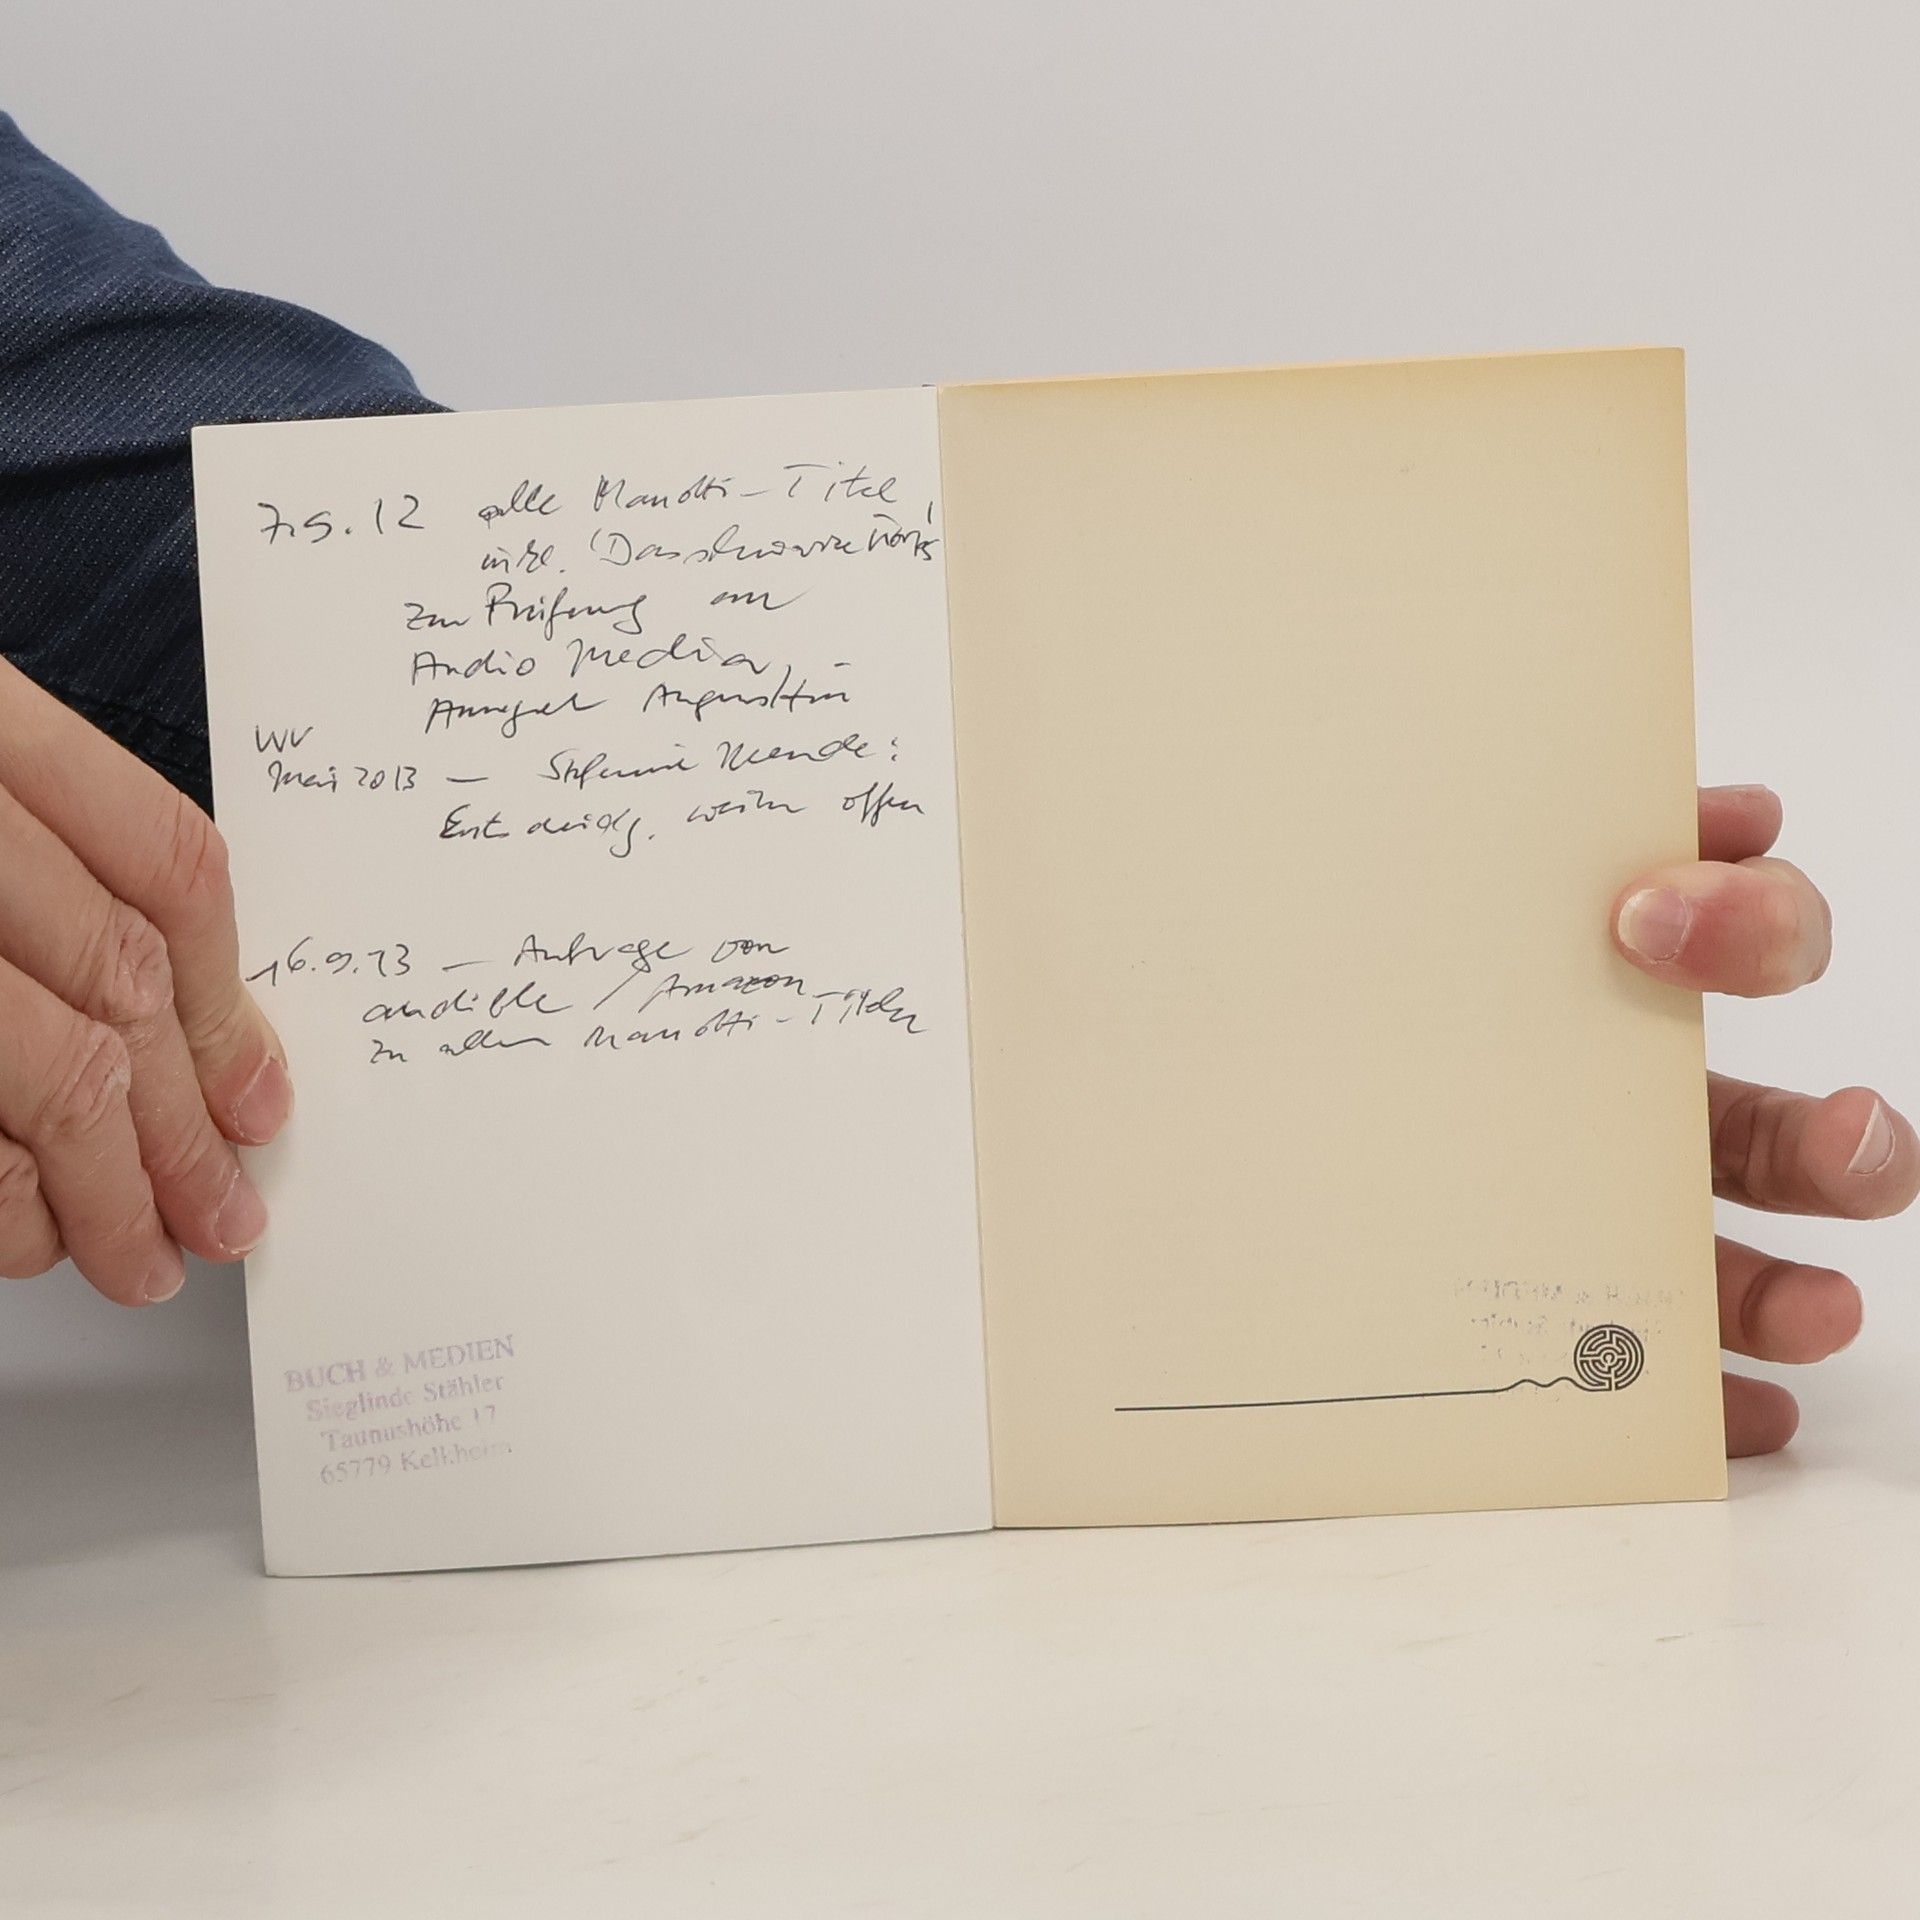 7.9.12 alle Manotti-Titel,
inkl. 'Das schwarze Korps'
zur Prüfung an
Audio Media,
Annegret Augustin
WV
Mai 2013 — Stefanie Mende:
Entscheidg. weiter offen
16.9.13 — Anfrage von
audible / Amazon
zu allen Manotti-Titeln
BUCH & MEDIEN
Sieglinde Stähler
Taunushöhe 17
65779 Kelkheim